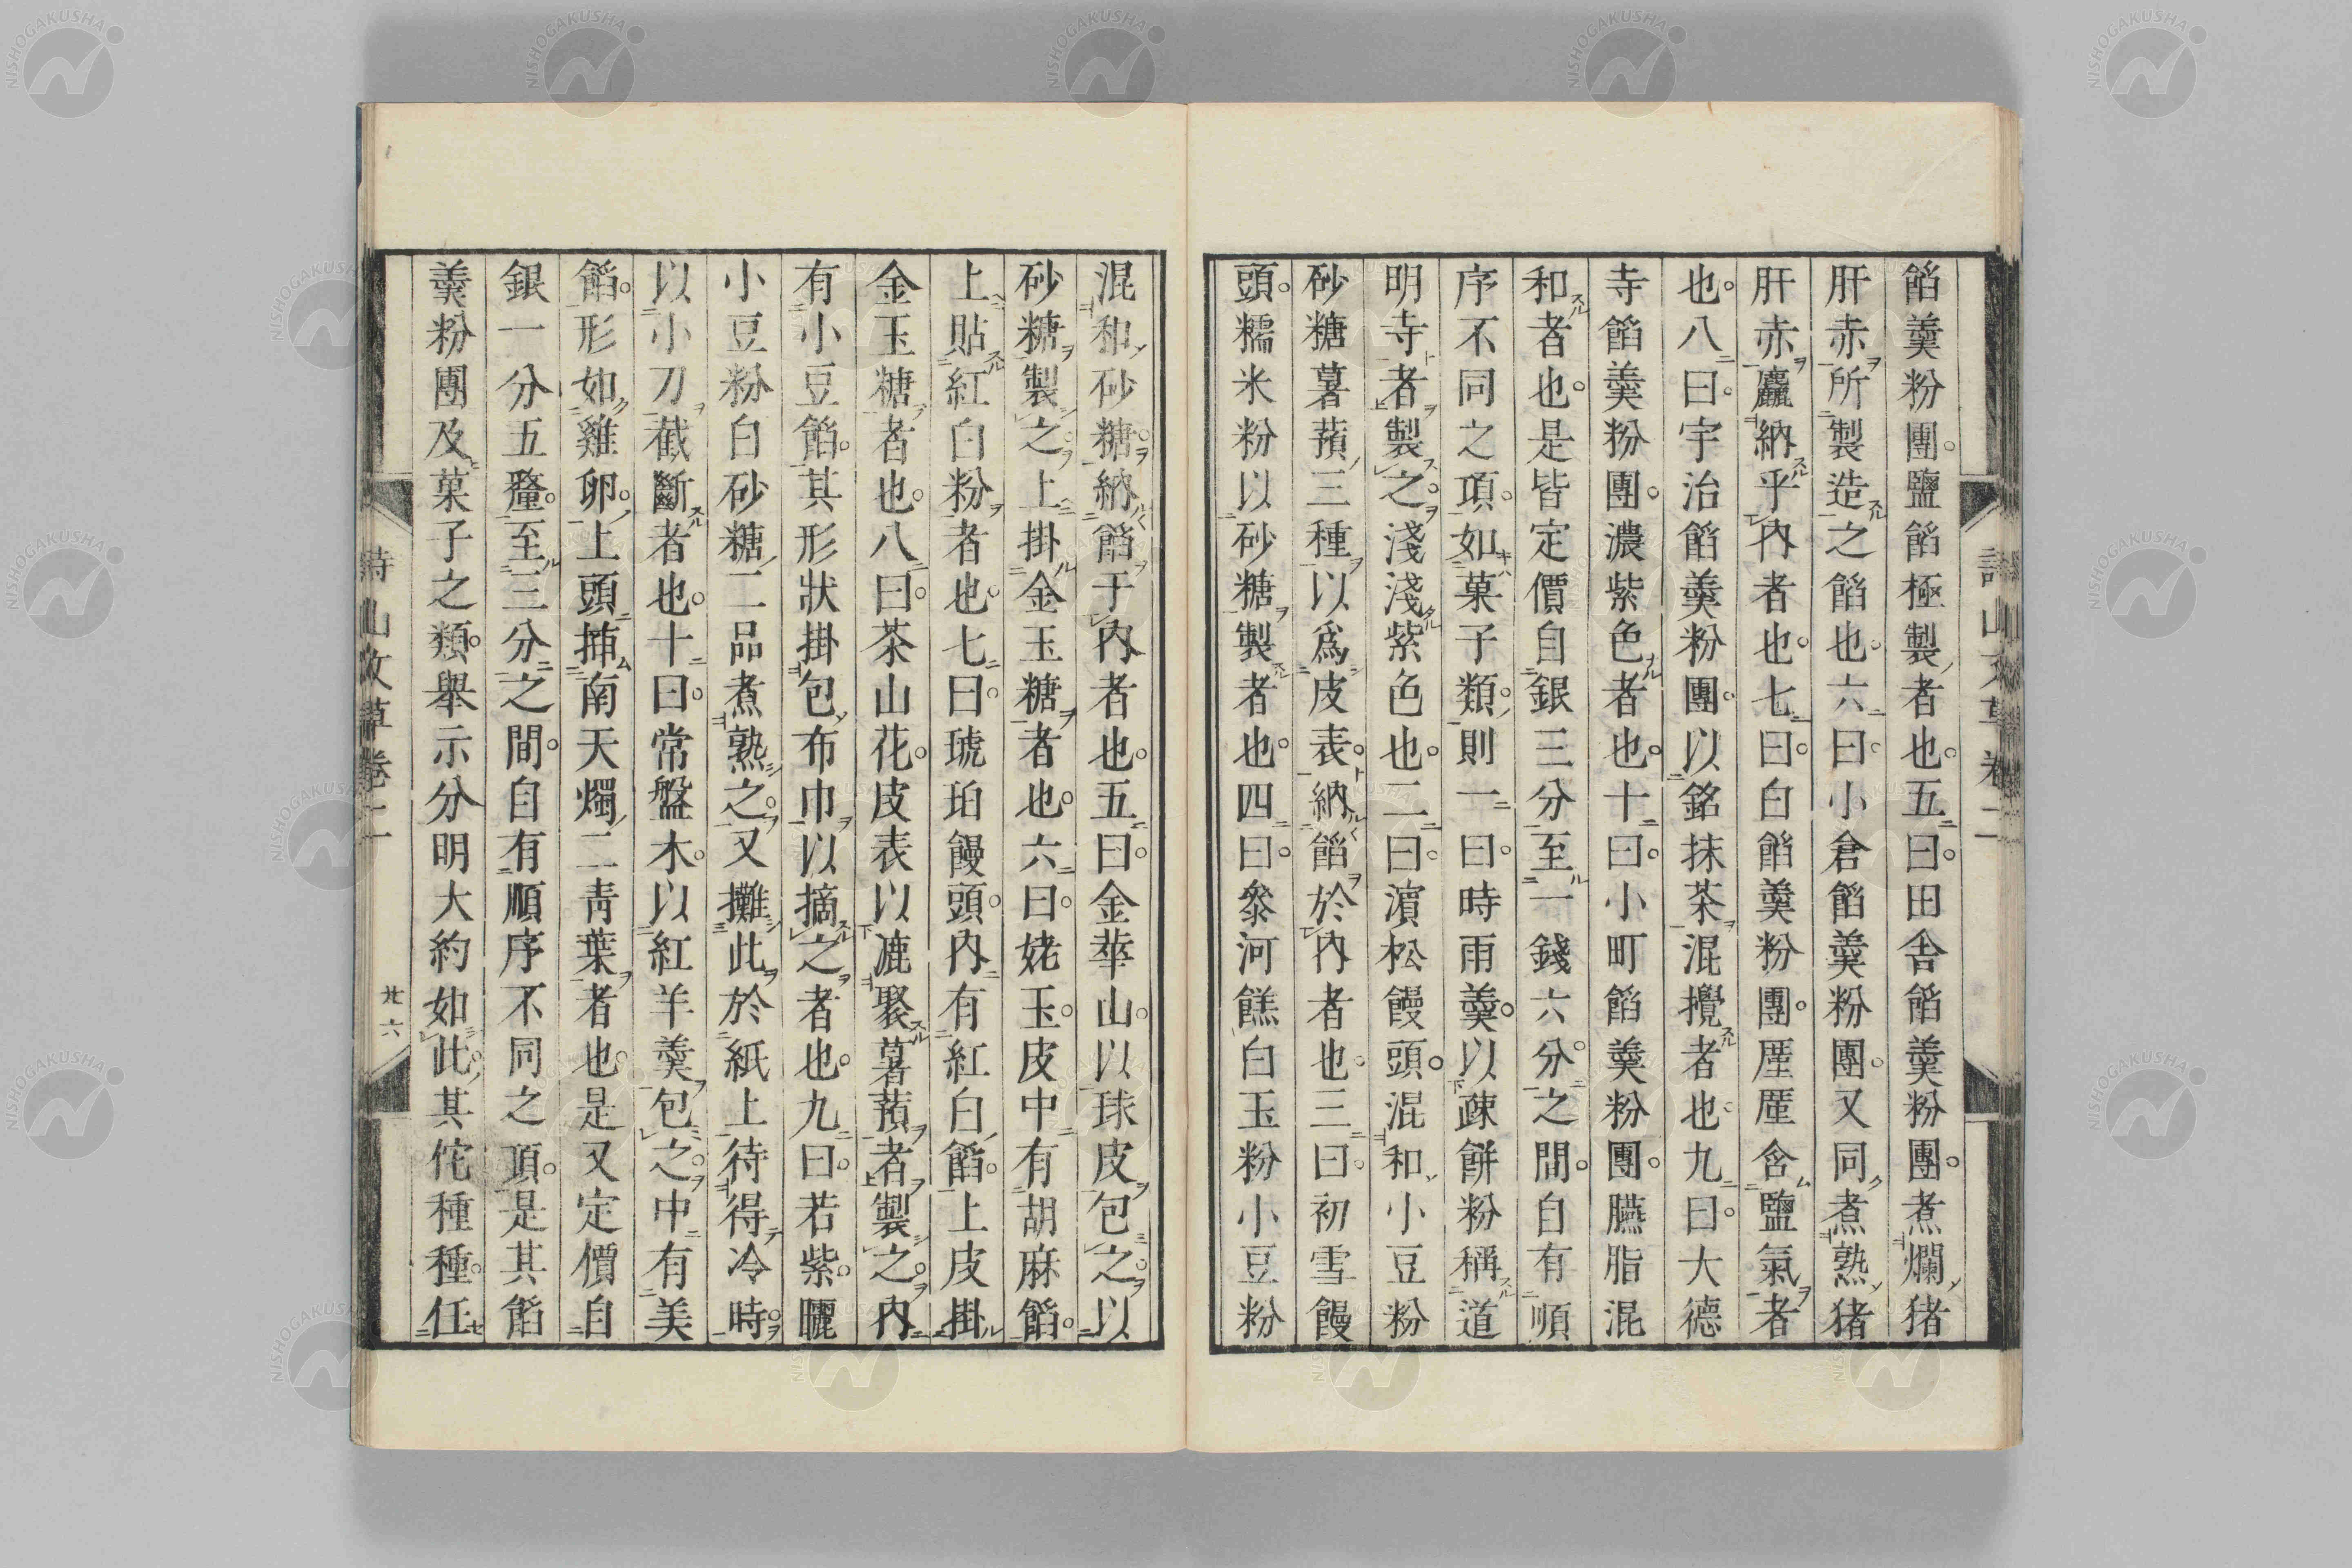 餡羹粉團鹽餡極製者也五曰田舍餡羹粉團煮爛猪
肝赤所製造之餡也六曰小倉餡羹粉團又同煮熟猪
肝赤麤納乎內者也七曰白餡羹粉團厓厓含鹽氣者
也八曰宇治餡羹粉團以銘抹茶混攪者也九曰大德
寺餡羹粉團濃紫色者也十曰小町餡羹粉團臙脂混
和者也是皆定價自銀三分至一錢六分之間自有順
序不同之項如菓子類則一曰時雨羹以疎餅粉稱道
明寺者製之淺淺紫色也二曰濱松饅頭混和小豆粉
砂糖薯蕷三種以爲皮表納餡於內者也三曰初雪饅
頭糯米粉以砂糖製者也四曰參河餻白玉粉小豆粉
詩山文草卷二
混和砂糖納餡于內者也五曰金華山以球皮包之以
砂糖製之上掛金玉糖者也六曰姥玉皮中有胡麻餡
上貼紅白粉者也七曰琥珀饅頭內有紅白餡上皮掛
金玉糖者也八曰茶山花皮表以漉聚薯蕷者製之內
有小豆餡其形狀掛包布巾以摘之者也九曰若紫曬
小豆粉白砂糖二品煮熟之又攤此於紙上待得冷時
以小刀截斷者也十曰常盤木以紅羊羹包之中有美
餡形如雞卵上頭揷南天燭二靑葉者也是又定價自
銀一分五釐至三分之間自有順序不同之項是其餡
羹粉團及菓子之類舉示分明大約如此其佗種種任
詩山文草卷二
廿六
NISHOGAKUSHA